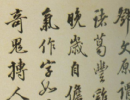 劉文原
諸葛豐
晚歲自
氣作字如
奇鬼搏人